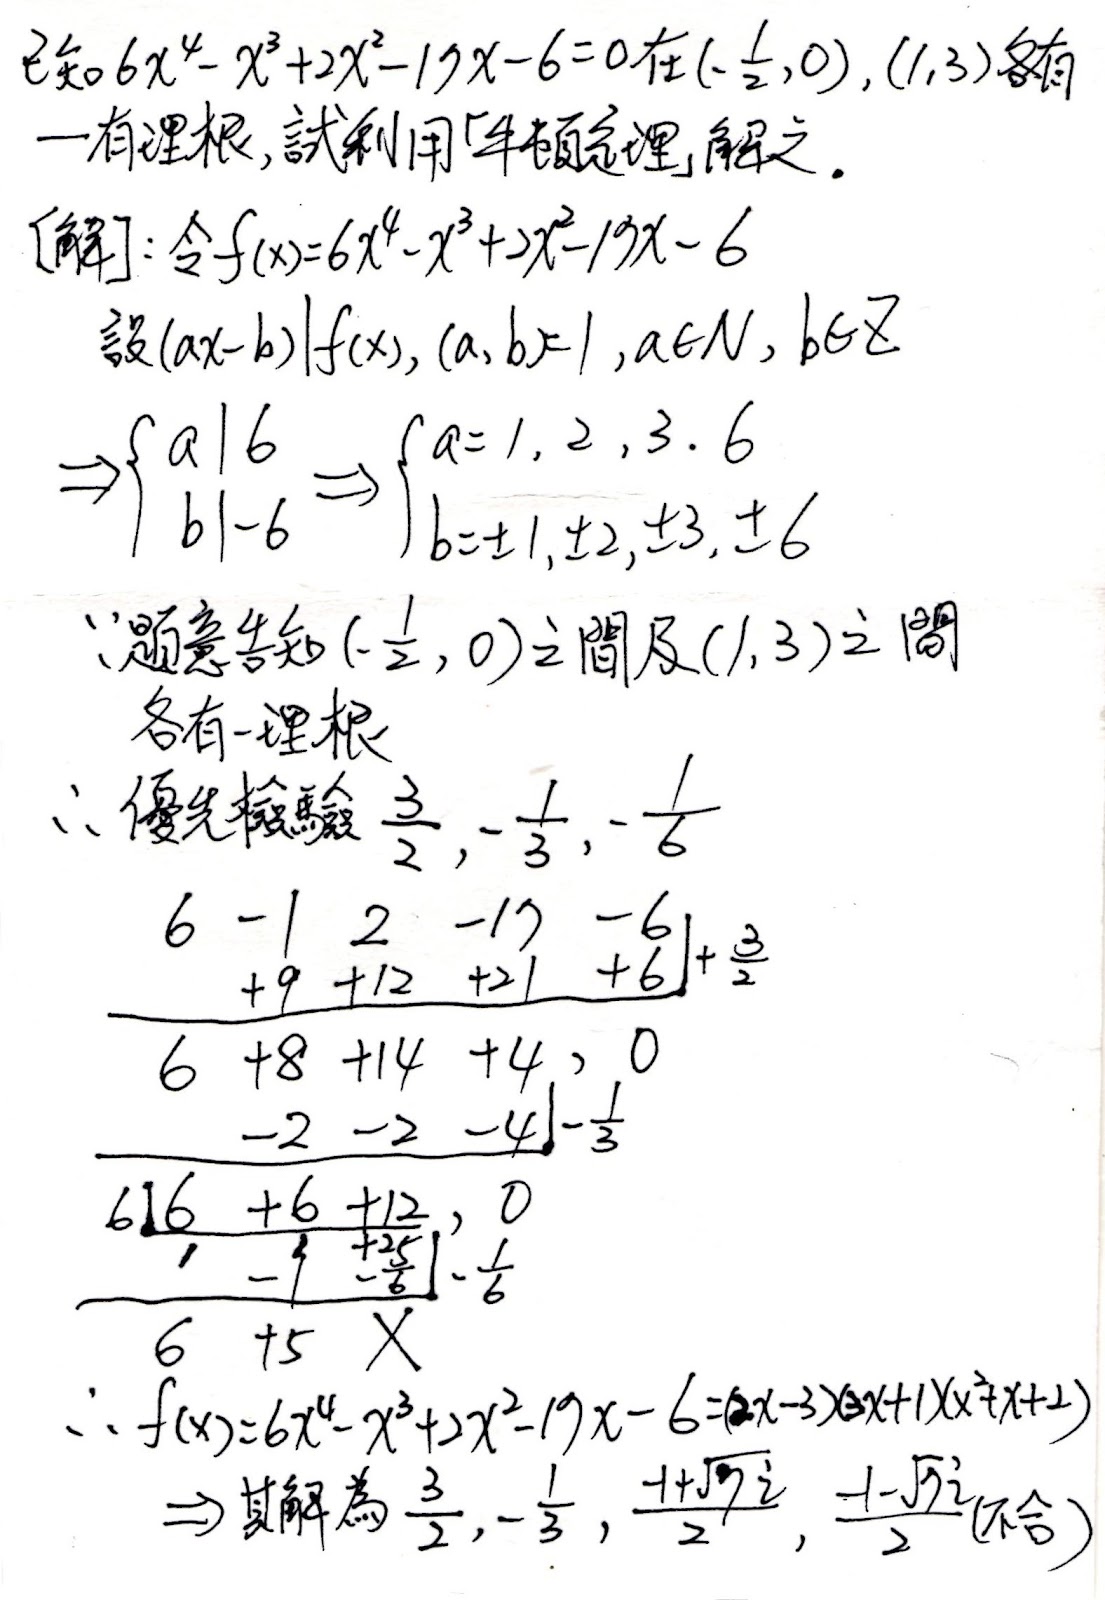 已知6x⁴-x³+2x²-17x-6=0在(-1/2,0),(1,3)各有
一有理根,試利用「牛頓定理」解之.
[解]:令f(x)=6x⁴-x³+2x²-17x-6
設(ax-b)|f(x), (a,b)=1, a∈N, b∈Z
⇒{a|6 ⇒{a=1,2,3.6
b|-6 b=±1,±2,±3,±6
∵題意告知(-1/2,0)之間及(1,3)之間
各有一理根
∴優先檢驗 3/2,-1/3,-1/6
6 -1 2 -17 -6
+9 +12 +21 +6 |+3/2
6 +8 +14 +4, 0
-2 -2 -4 |-1/3
6|6 +6 +12, 0
1 -1 -5/6 |-1/6
6 +5 X
∴f(x)=6x⁴-x³+2x²-17x-6=(2x-3)(3x+1)(x²+x+2)
⇒其解為 3/2,-1/3, (-1+√7i)/2, (-1-√7i)/2 (不合)